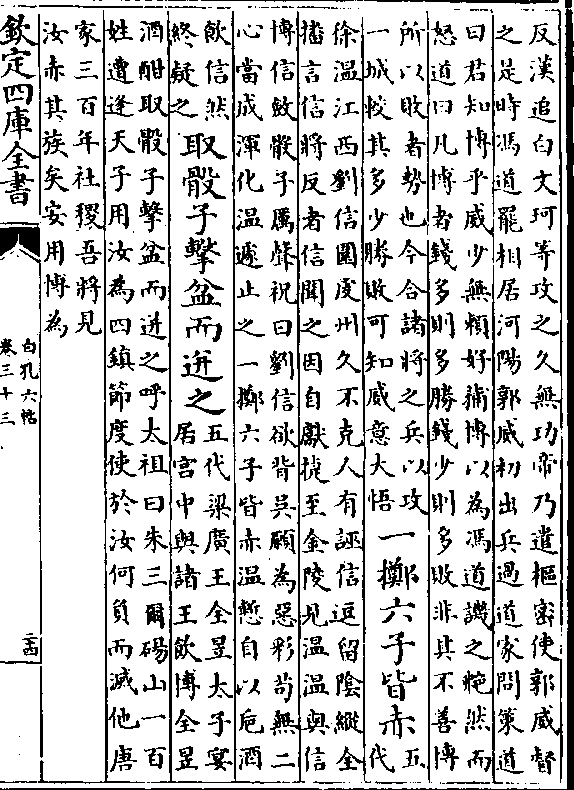 反漢追白文珂等攻之久無功帝乃遣樞密使郭威督
之是時馮道罷相居河陽郭威初出兵過道家問策道
曰君知博乎威少無賴好蒱博以為馮道譏之艴然而
怒道曰凡博者錢多則多勝錢少則多敗非其不善博
所以敗者勢也今合諸將之兵以攻
一城較其多少勝敗可知威意大悟
一擲六子皆赤
五
代
徐溫江西劉信圍虔州久不克人有誣信逗留陰縱全
播言信將反者信聞之因自獻捷至金陵見溫溫與信
博信斂骰子厲聲祝曰劉信欲背吳願為惡彩苟無二
心當成渾化溫遽止之一擲六子皆赤溫慙自以巵酒
飲信然
終疑之
取骰子擊盆而迸之
五代梁廣王全昱太子宴
居宮中與諸王飲博全昱
酒酣取骰子擊盆而迸之呼太祖曰朱三爾碭山一百
姓遭逢天子用汝為四鎮節度使於汝何負而滅他唐
家三百年社稷吾將見
汝赤其族矣安用博為
欽定四庫全書
白孔六帖
卷三十三
二十四